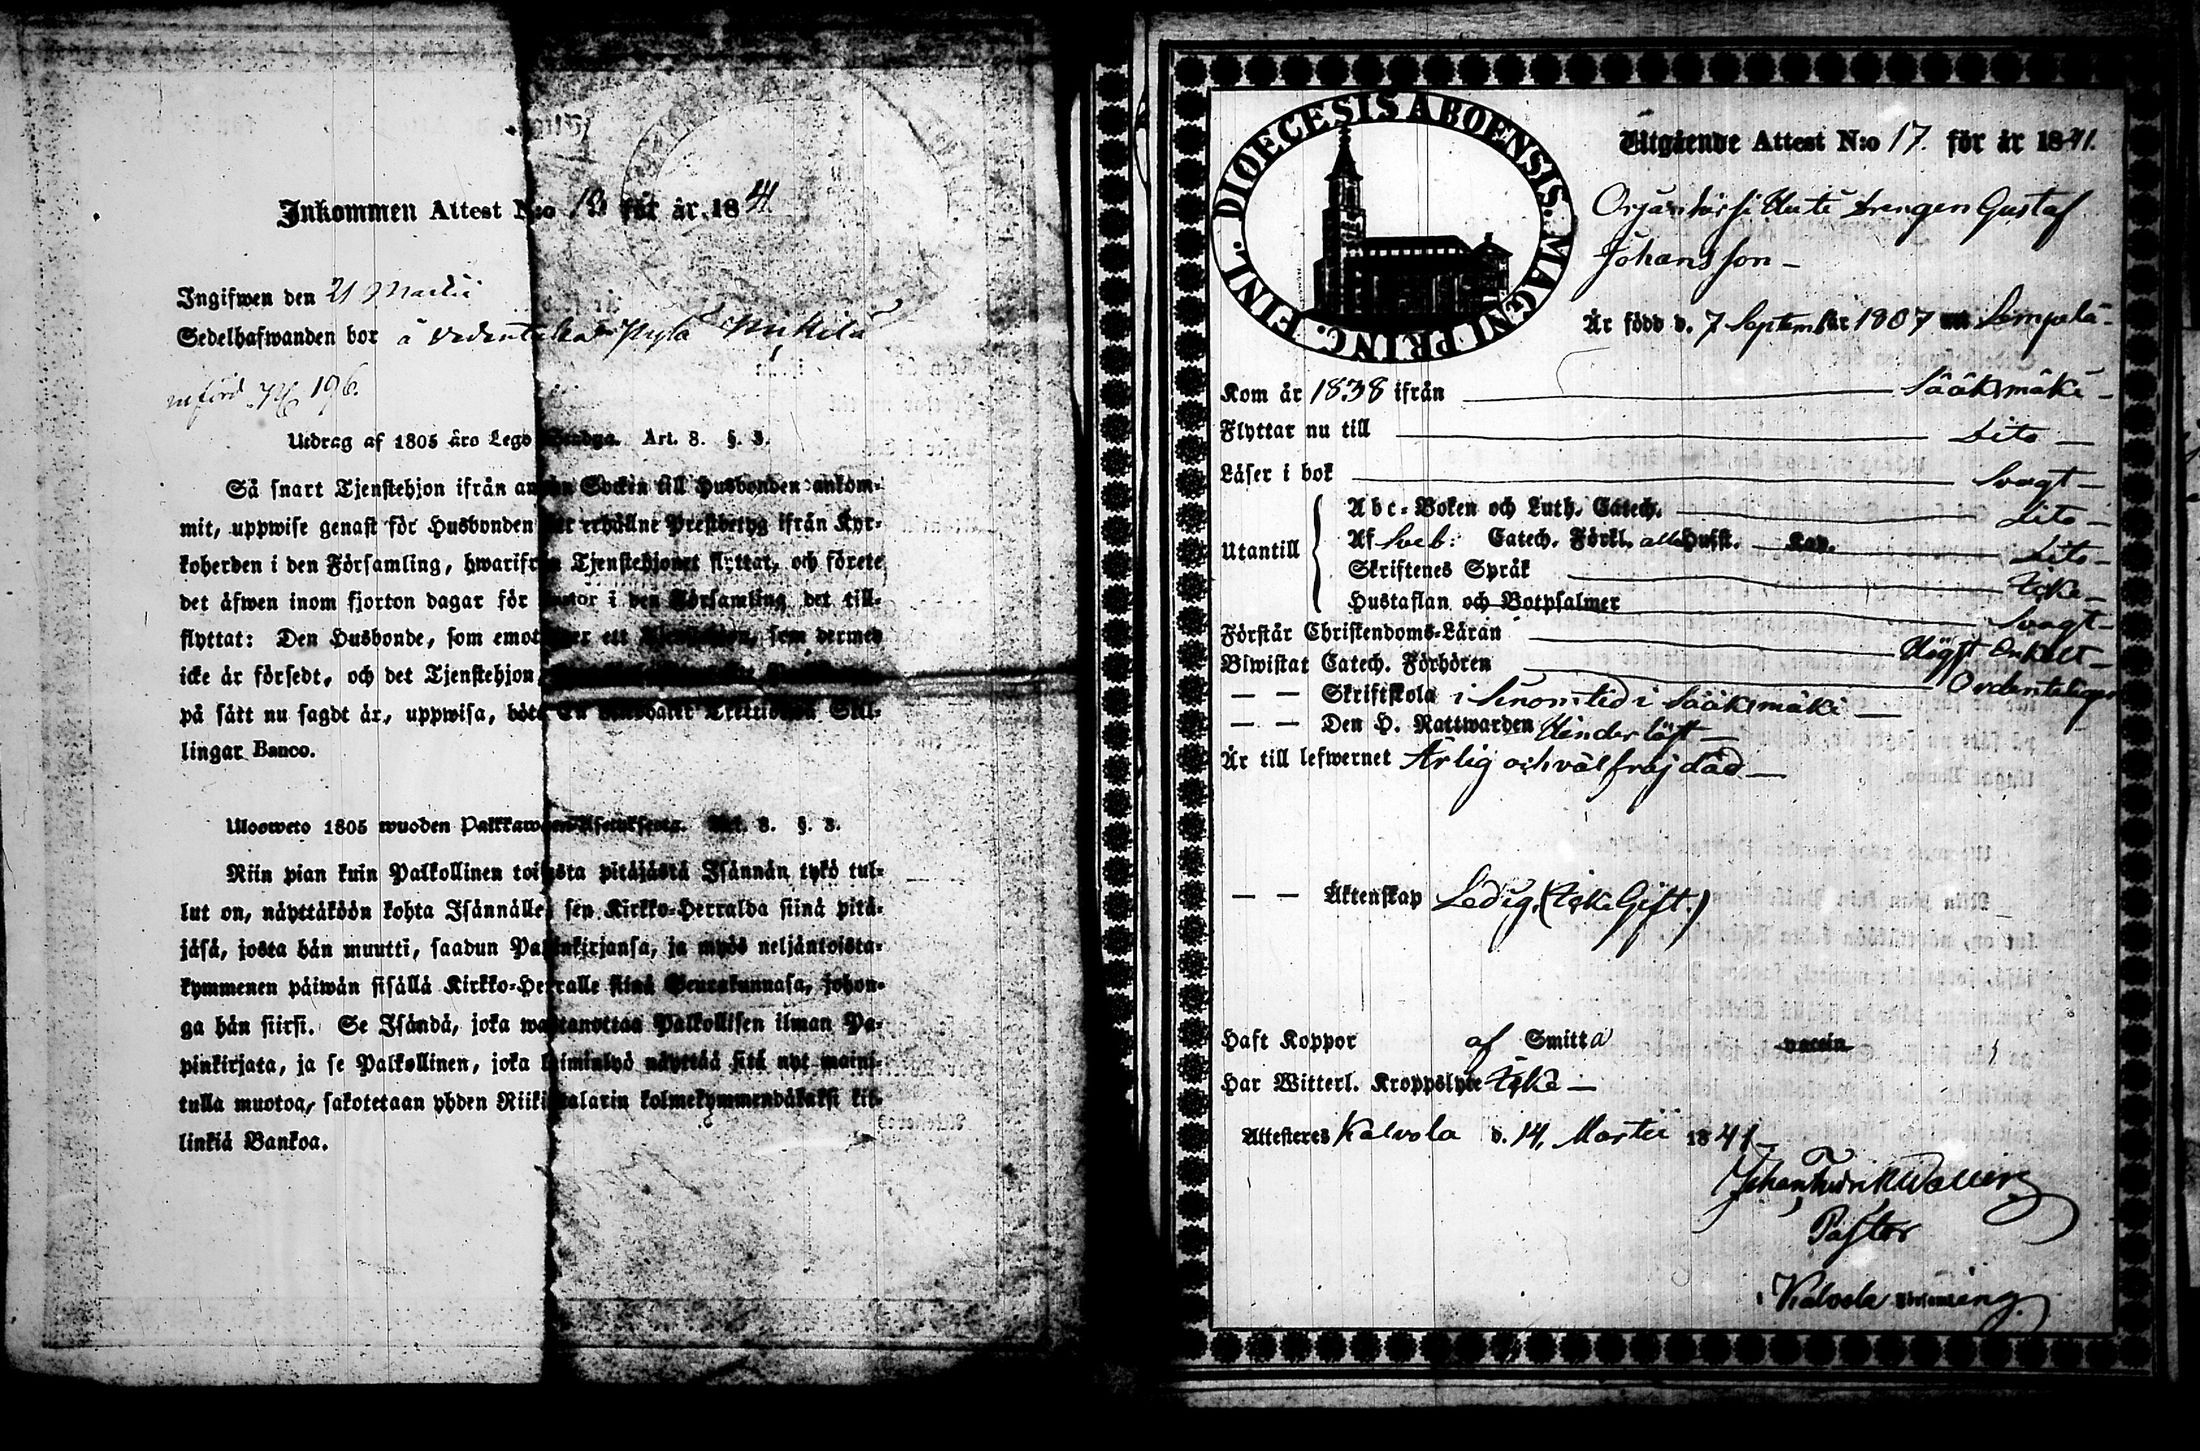 Inkommen Attest N:o 13 för år 1841
Ingifwen den 21 Martii
Sedelhafwanden bor å
införd 196.
Utdrag af 1805 års Lego Art. 8. §. 3.
Så snart Tjenstehjon ifrån annan Sockn till Husbonden ankom-
mit, uppwise genast för Husbonden erhållne Prestbetyg ifrån Kyr-
koherden i den Församling, hwarifrån Tjenstehjonet flyttat, och förete
det äfwen inom fjorton dagar för Pastor i den Församling det till-
flyttat: Den Husbonde, som emottager ett Tjenstehjon, som dermed
icke är försedt, och det Tjenstehjon,
på sätt nu sagdt är, uppwisa, böte En Riksdaler Trettiotwå Skil-
lingar Banco.
Ulosweto 1805 wuoden Palkkawäen Asetuksesta. Art. 8. §. 3.
Niin pian kuin Palkollinen toisesta pitäjästä Isännän tykö tul-
lut on, näyttäköön kohta Isännälle, sen Kirkko-Herralda siinä pitä-
jäsä, josta hän muutti, saadun Papinkirjansa, ja myös neljäntoista-
kymmenen päiwän sisällä Kirkko-Herralle siinä Seurakunnasa, johon-
ga hän siirsi. Se Isändä, joka wastanottaa Palkollisen ilman Pa-
pinkirjata, ja se Palkollinen, joka laiminlyö näyttää sitä nyt maini-
tulla muotoa, sakotetaan yhden Riikintalarin kolmekymmendäkaksi kil-
linkiä Bankoa.
DIOECESIS ABOENSIS. MAGNI PRINC. FINL.
Utgående Attest N:o 17. för år 1841.
Drengen Gustaf
Johansson
Är född d. 7 September 1807 Lempälä
Kom år 1838 ifrån Sääksmäki
Flyttar nu till Dito
Läser i bok Svagt
Utantill
Abc-Boken och Luth. Catech. Dito
Af Sveb: Catech. Förkl. alla Hufst. Kap. Dito
Skriftenes Språk Icke
Hustaflan och Botpsalmer Svagt
Förstår Christendoms-Läran Högst Enkelt
Biwistat Catech. Förhören Ordenteligen
— — Skriftskola i Sinom tid i Sääksmäki
— — Den H. Nattwarden Hinderlöst
Är till lefwernet Ärlig och välfrejdad
— — Äktenskap Ledig, (Icke Gift.)
Haft Koppor af Smitta vaccin
Har Witterl. Kroppslyte Icke
Attesteres Kalvola d. 14, Martii 1841
Johan Fredrik Wallenius
Pastor
i Kalvola Församling.